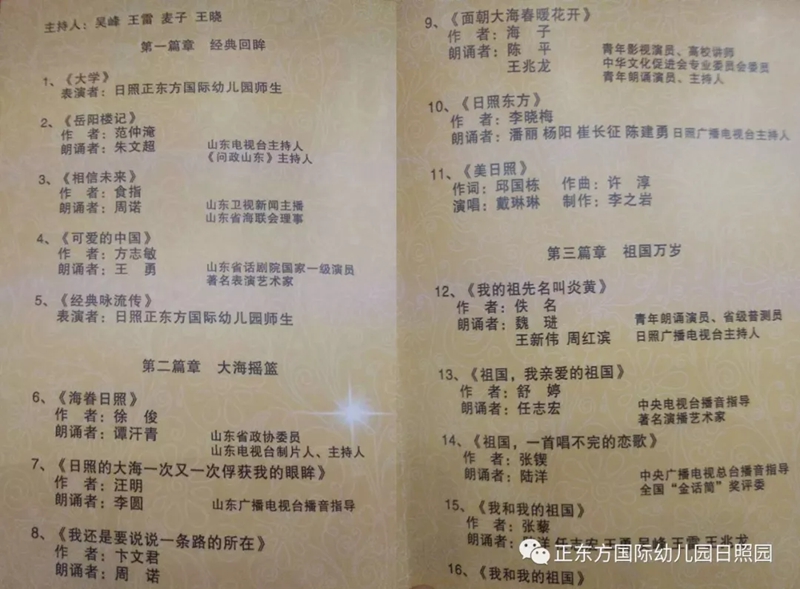 主持人：吴峰 王雷 麦子 王晓
第一篇章 经典回眸
1、《大学》
表演者：日照正东方国际幼儿园师生
2、《岳阳楼记》
作 者：范仲淹
朗诵者：朱文超 山东电视台主持人
《问政山东》主持人
3、《相信未来》
作 者：食指
朗诵者：周诺 山东卫视新闻主播
山东省海联会理事
4、《可爱的中国》
作 者：方志敏
朗诵者：王 勇 山东省话剧院国家一级演员
著名表演艺术家
5、《经典咏流传》
表演者：日照正东方国际幼儿园师生
第二篇章 大海摇篮
6、《海眷日照》
作 者：徐 俊
朗诵者：谭汗青 山东省政协委员
山东电视台制片人、主持人
7、《日照的大海一次又一次俘获我的眼眸》
作 者：汪明
朗诵者：李圆 山东广播电视台播音指导
8、《我还是要说说一条路的所在》
作 者：卞文君
朗诵者：周 诺
9、《面朝大海春暖花开》
作 者：海 子
朗诵者：陈 平 青年影视演员、高校讲师
王兆龙 中华文化促进会专业委员会委员
青年朗诵演员、主持人
10、《日照东方》
作 者：李晓梅
朗诵者：潘丽 杨阳 崔长征 陈建勇 日照广播电视台主持人
11、《美日照》
作词：邱国栋 作曲：许 淳
演唱：戴琳琳 制作：李之岩
第三篇章 祖国万岁
12、《我的祖先名叫炎黄》
作 者：佚 名
朗诵者：魏 琎 青年朗诵演员、省级普测员
王新伟 周红滨 日照广播电视台主持人
13、《祖国，我亲爱的祖国》
作 者：舒 婷
朗诵者：任志宏 中央电视台播音指导
著名演播艺术家
14、《祖国，一首唱不完的恋歌》
作 者：张锲
朗诵者：陆洋 中央广播电视总台播音指导
全国“金话筒”奖评委
15、《我和我的祖国》
作 者：张藜
朗诵者：陆洋 任志宏 王勇 吴峰 王雷 王兆龙
正东方国际幼儿园日照园
16、《我和我的祖国》